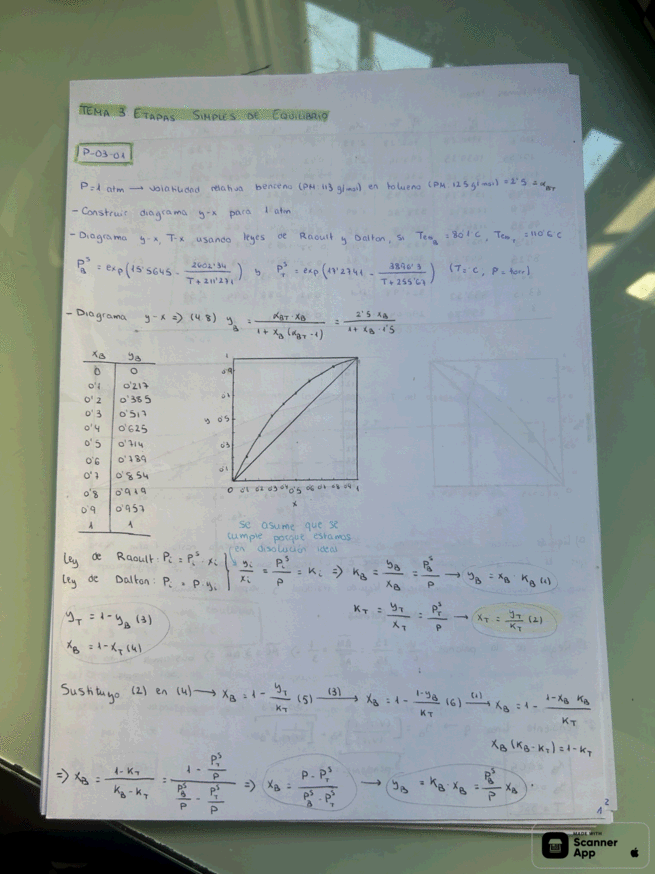 TEMA 3 ETAPAS SIMPLES DE EQUILIBRIO
P-03-01
P=1 atm → volatilidad relativa benceno (PM: 113 g/mol) en tolueno (PM: 125 g/mol) = 2'5 = αBT
- Construir diagrama y-x para 1 atm
- Diagrama y-x, T-x usando leyes de Raoult y Dalton, si TemB = 80'1 C, TemT = 110'6 C
P_B^s = exp(15'5645 - 2602'34 / (T + 211'271)) y P_T^s = exp(17'2741 - 3896'3 / (T + 255'67)) (T = C, P = torr)
- Diagrama y-x => (4.8) y_B = αBT · xB / (1 + xB (αBT - 1)) = 2'5 · xB / (1 + xB · 1'5)
xB yB
0 0
0'1 0'217
0'2 0'385
0'3 0'517
0'4 0'625
0'5 0'714
0'6 0'789
0'7 0'854
0'8 0'919
0'9 0'957
1 1
1
0'9
y 0'5
0'3
0'1
0 0'1 0'2 0'3 0'4 0'5 0'6 0'7 0'8 0'9 1
x
se asume que se
cumple porque estamos
en disolución ideal
Ley de Raoult: Pi = Pi^s · xi
Ley de Dalton: Pi = P · yi
yi / xi = Pi^s / P = Ki => KB = yB / xB = PB^s / P → yB = xB KB (1)
KT = yT / xT = PT^s / P → xT = yT / KT (2)
yT = 1 - yB (3)
xB = 1 - xT (4)
Sustituyo (2) en (4) → xB = 1 - yT / KT (5) (3)→ xB = 1 - (1 - yB) / KT (6) (1)→ xB = 1 - (1 - xB KB) / KT
xB (KB - KT) = 1 - KT
=> xB = (1 - KT) / (KB - KT) = (1 - PT^s / P) / (PB^s / P - PT^s / P) => xB = (P - PT^s) / (PB^s - PT^s) → yB = KB · xB = PB^s / P xB
MADE WITH
Scanner
App